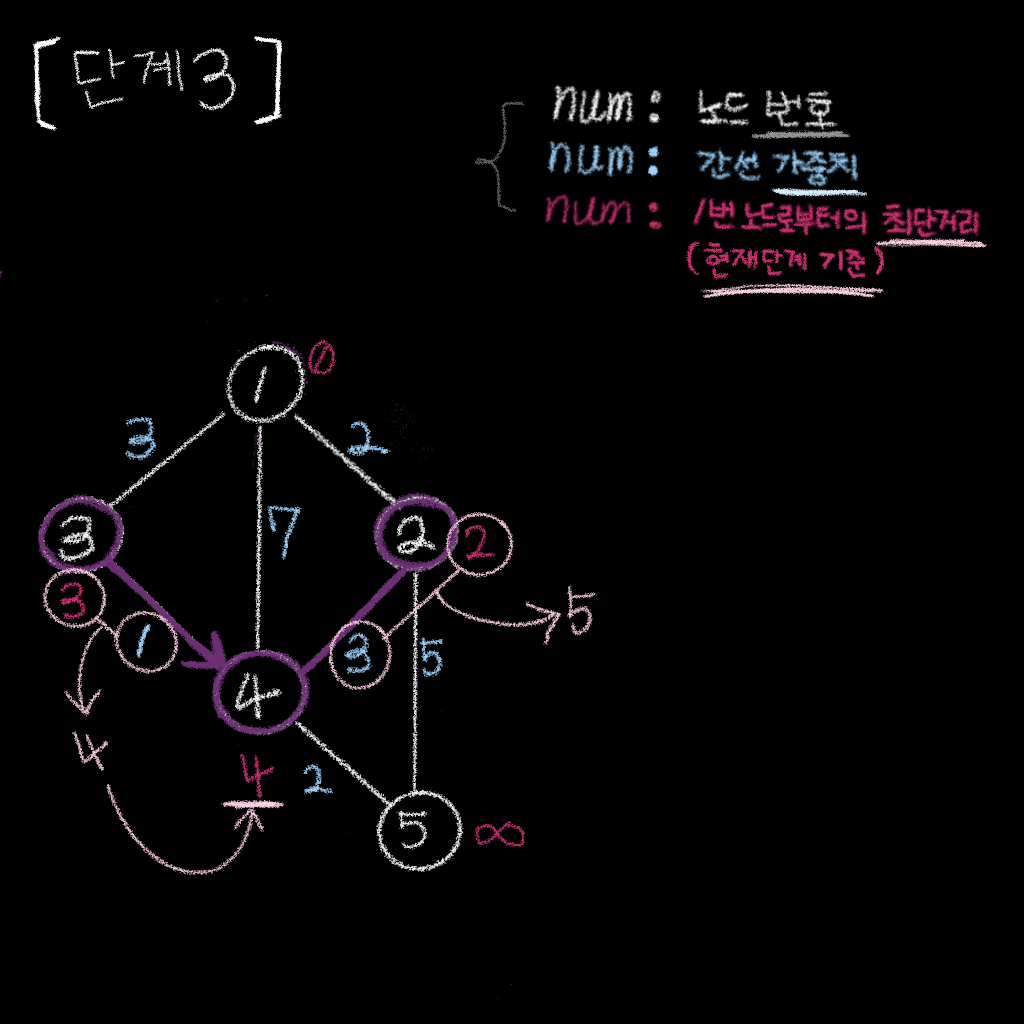 [단계3]
num : 노드 번호
num : 간선 가중치
num : 1번 노드로부터의 최단거리
(현재단계 기준)
1 0
3 2
7
3 2 2
3 1 3 5 5
4
4 4 2
5 ∞